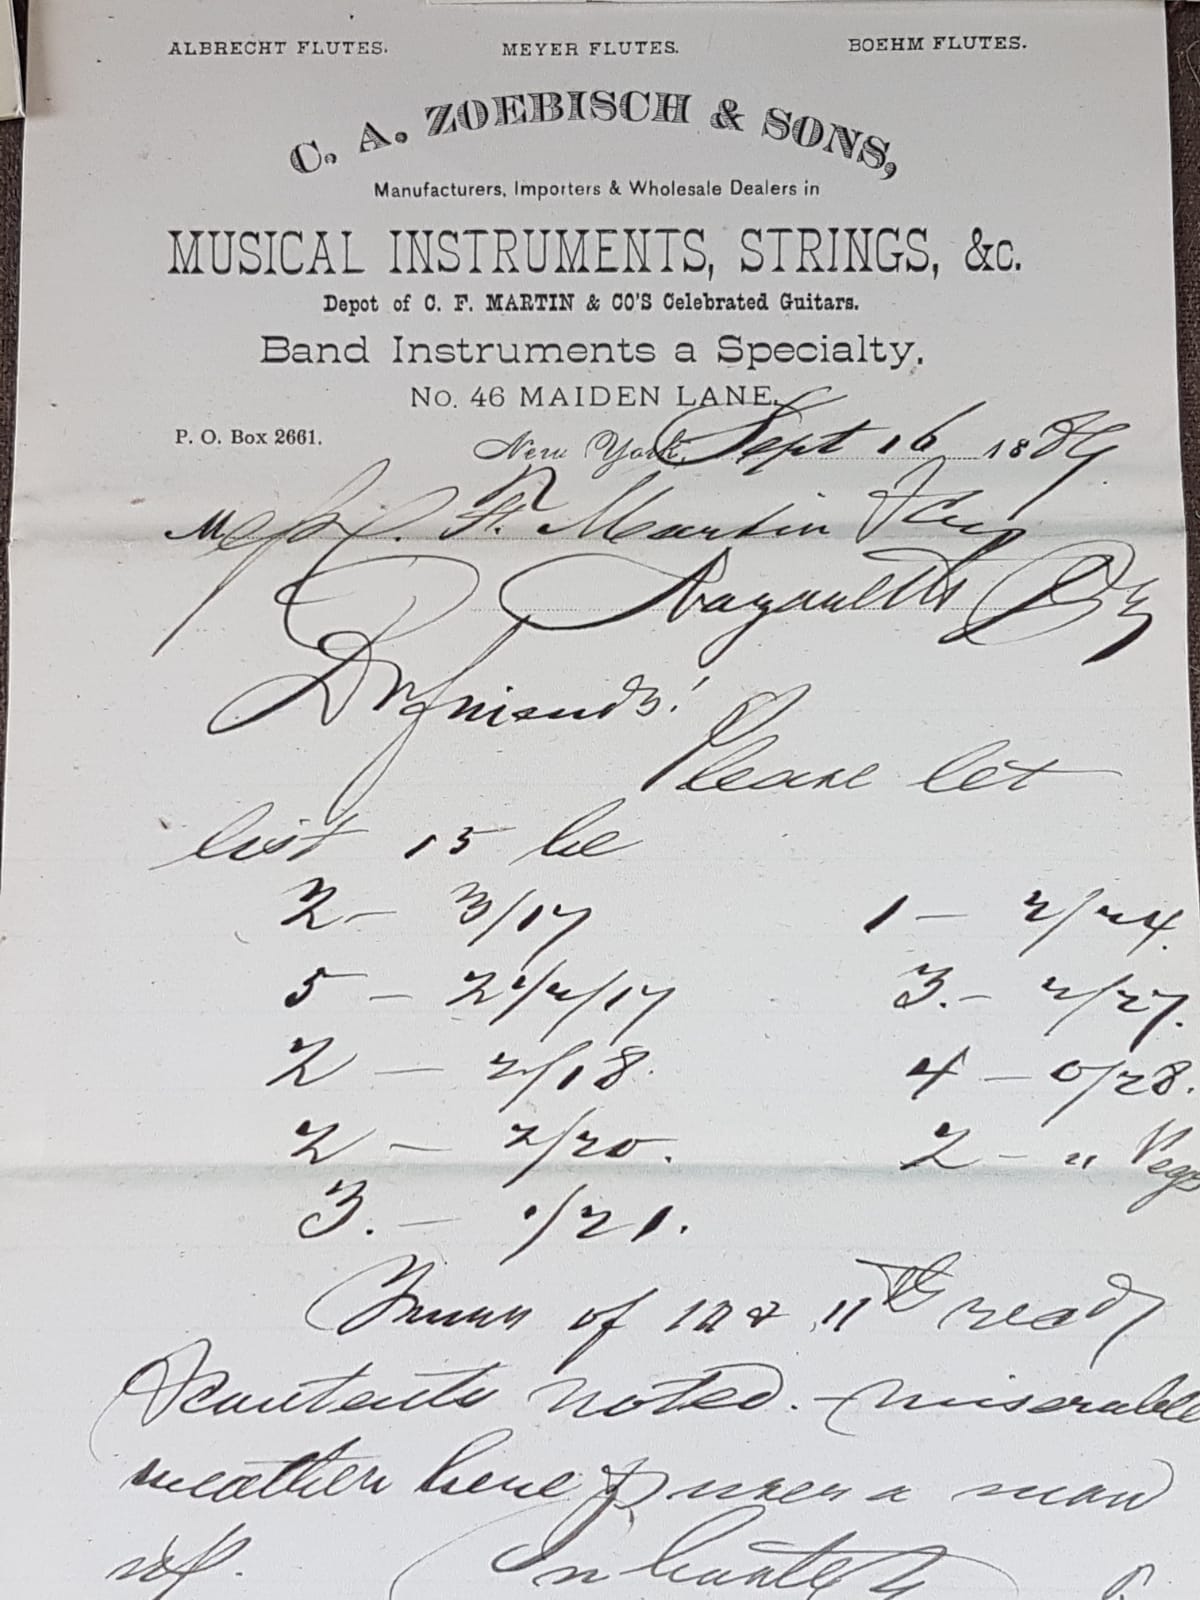 ALBRECHT FLUTES. MEYER FLUTES. BOEHM FLUTES.
C. A. ZOEBISCH & SONS,
Manufacturers, Importers & Wholesale Dealers in
MUSICAL INSTRUMENTS, STRINGS, &c.
Depot of C. F. MARTIN & CO'S Celebrated Guitars.
Band Instruments a Specialty.
No. 46 MAIDEN LANE.
P. O. Box 2661. New York, Sept 16 1889
Mess. C. F. Martin & Co
Nazareth Pa
Dr friends!
Please let
list 15 be
2 - 3/17 1 - 2/24.
5 - 2 1/2/17 3. - 2/27.
2 - 2/18. 4 - 0/28.
2 - 2/20. 2 - " Pegs
3. - 1/21.
of 11th recd
& contents noted. - miserable
weather here & a man
In haste